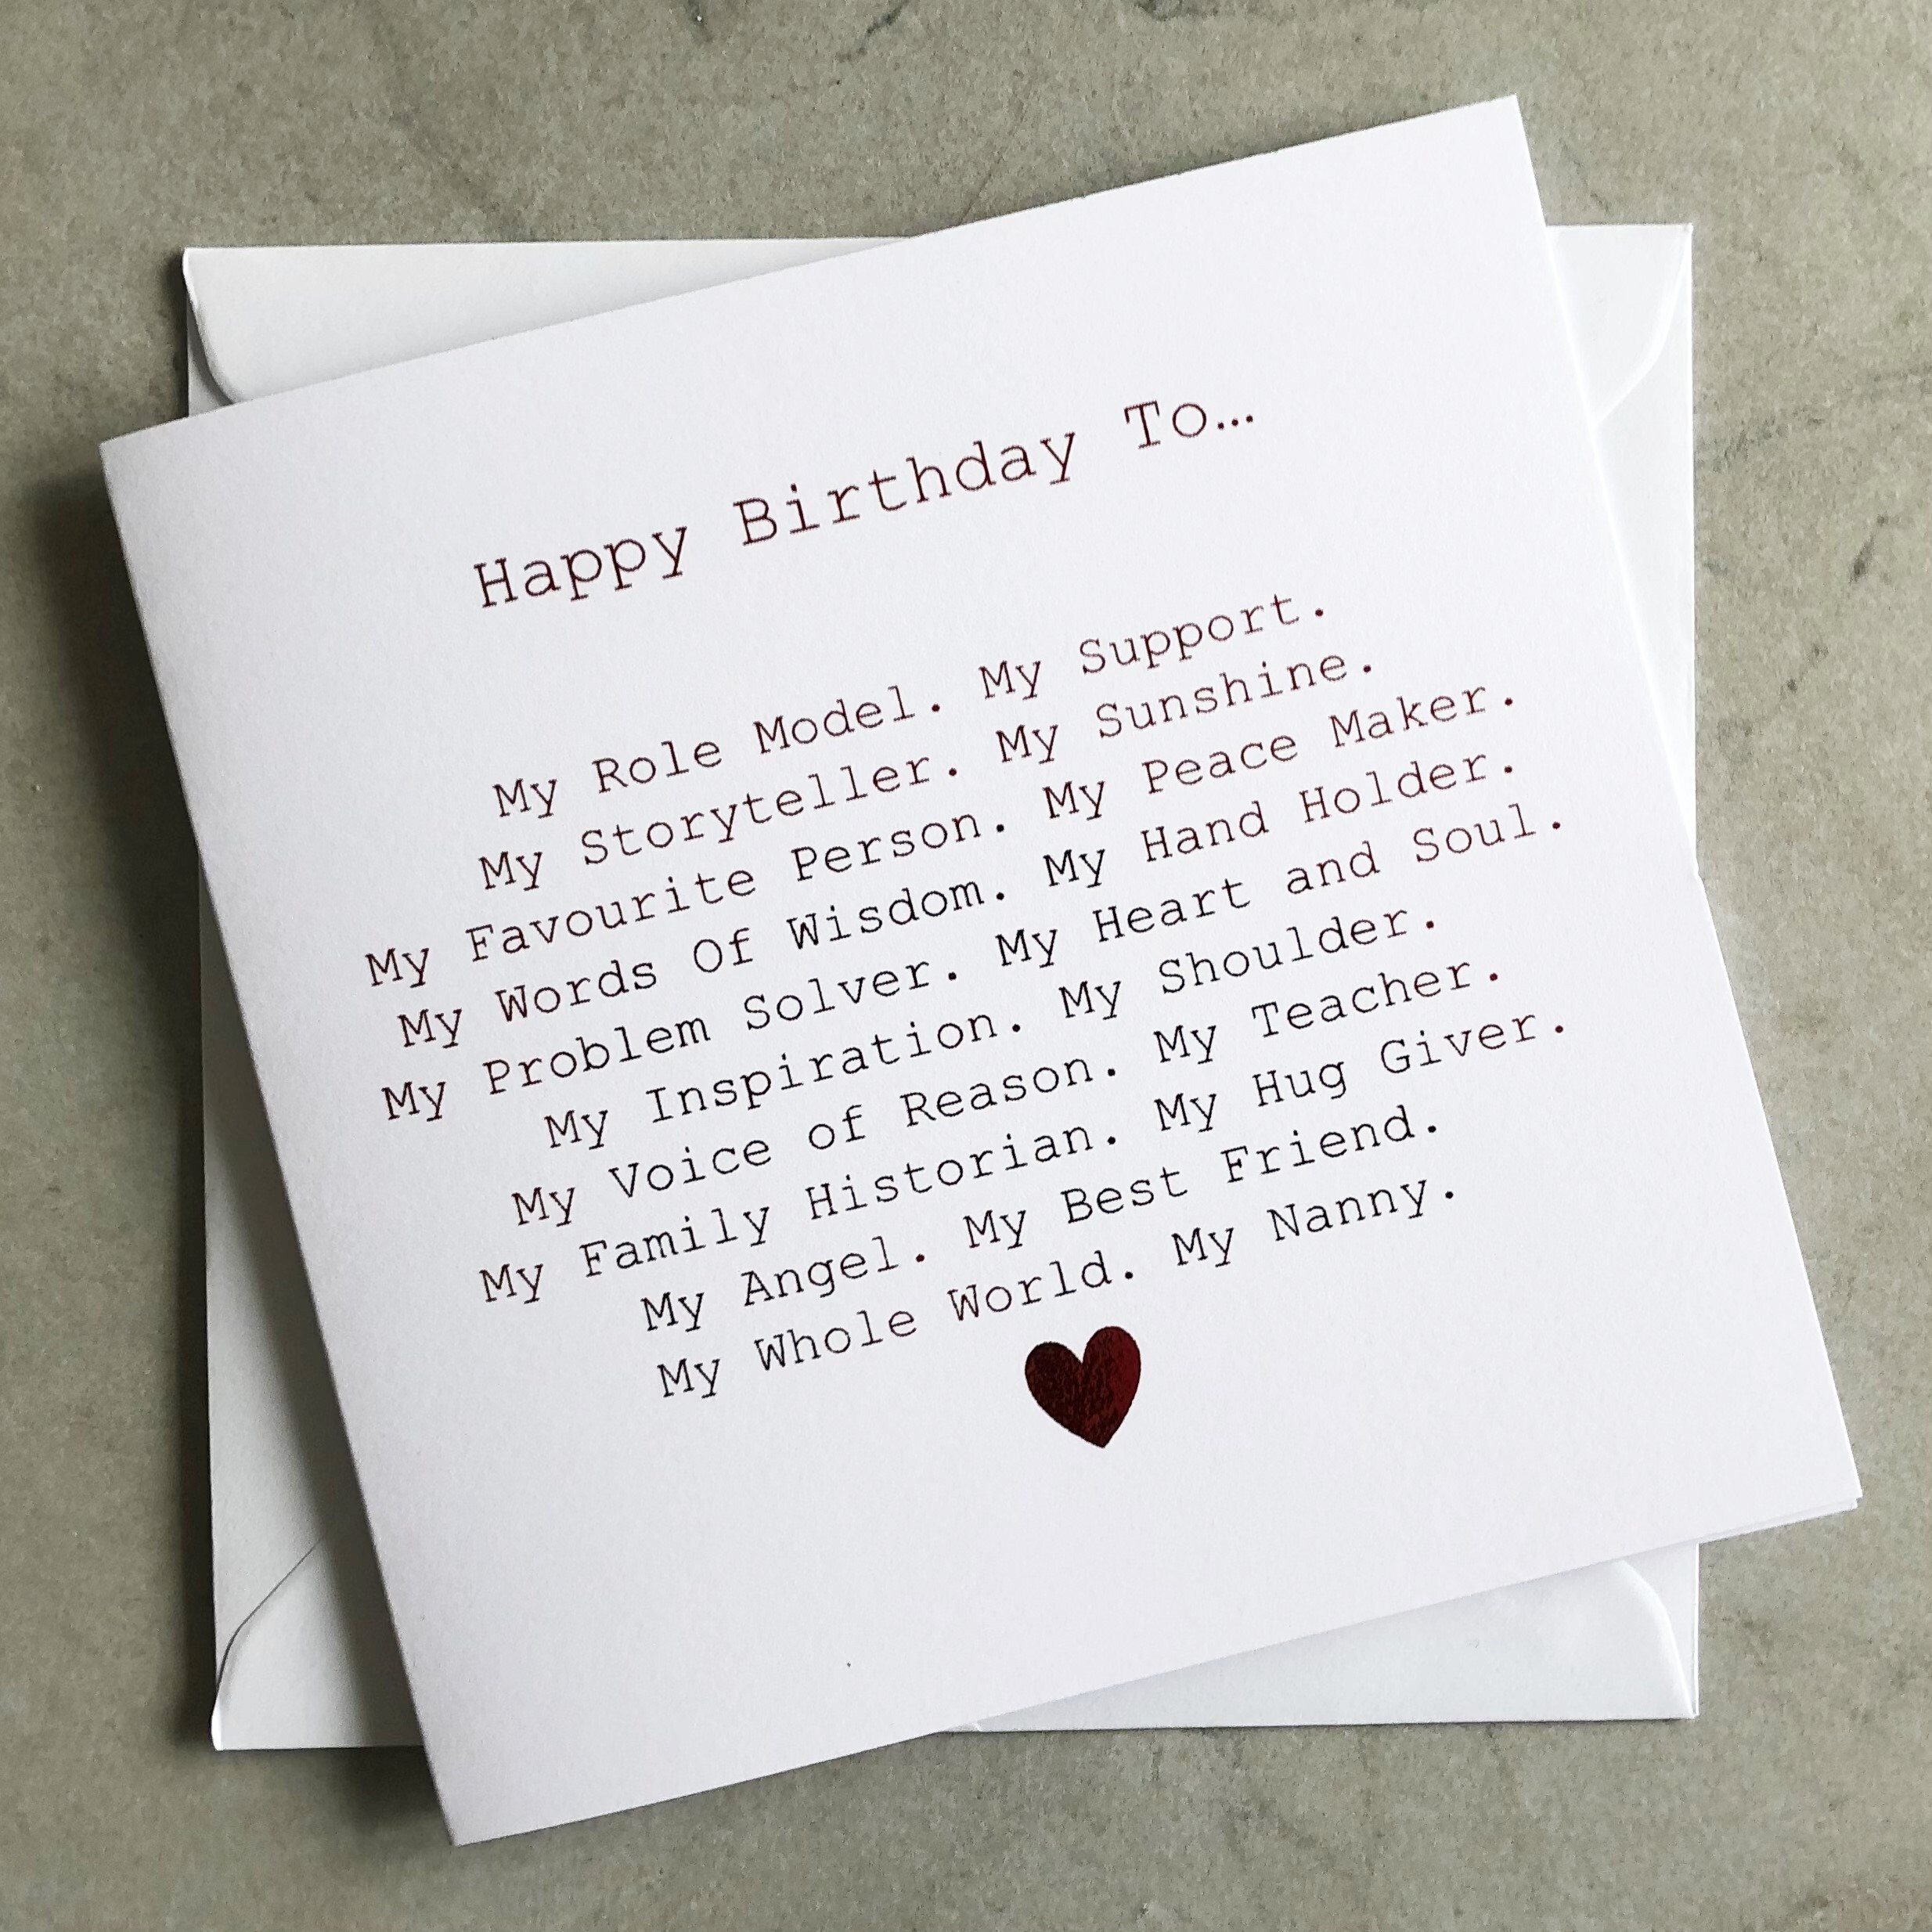 Happy Birthday To...
My Role Model. My Support.
My Storyteller. My Sunshine.
My Favourite Person. My Peace Maker.
My Words Of Wisdom. My Hand Holder.
My Problem Solver. My Heart and Soul.
My Inspiration. My Shoulder.
My Voice of Reason. My Teacher.
My Family Historian. My Hug Giver.
My Angel. My Best Friend.
My Whole World. My Nanny.